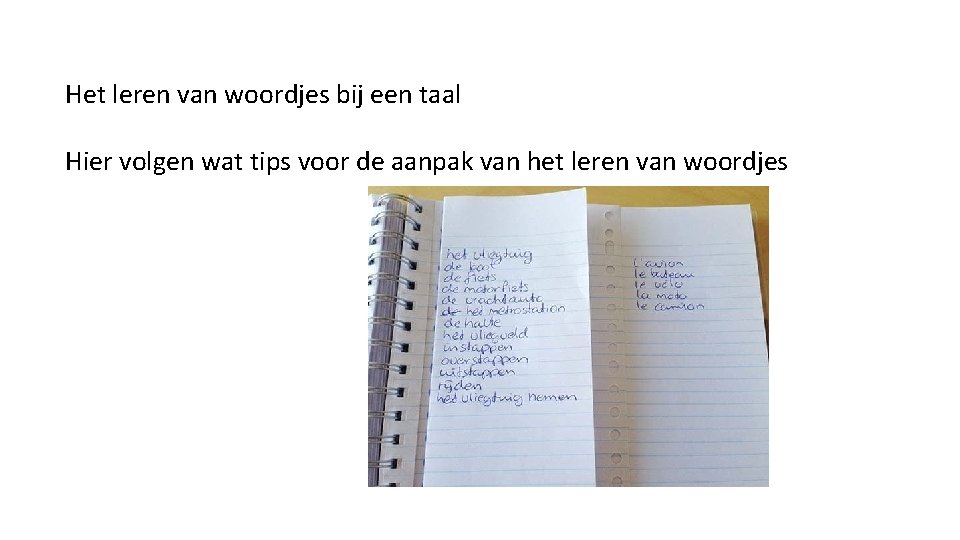 Het leren van woordjes bij een taal
Hier volgen wat tips voor de aanpak van het leren van woordjes
het vliegtuig
de boot
de fiets
de motorfiets
de vrachtauto
de het metrostation
de halte
het vliegveld
instappen
overstappen
uitstappen
rijden
het vliegtuig nemen
l'avion
le bateau
le vélo
la moto
le camion